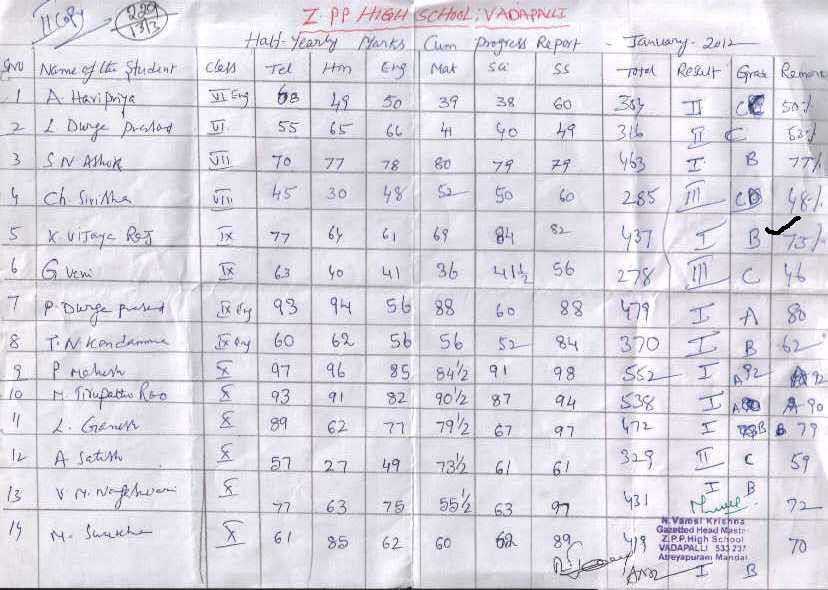 II Copy
229
13/3
Z.PP HIGH SCHOOL; VADAPALLI
Half-Yearly Marks Cum Progress Report - January-2012
SNO Name of the Student Class Tel Hin Eng Mat Sci SS Total Result Grad Remark
1 A. Haripriya VI Eng 68 49 50 39 38 60 II C 50%
2 L. Durga prasad VI 55 65 66 41 40 49 316 II C 53%
3 S N Ashok VII 70 77 78 80 79 79 463 I B 77%
4 Ch. Sirisha VIII 45 30 48 52 50 60 285 III C 48%
5 K. Vijaya Raj IX 77 64 61 69 84 82 437 I B 73%
6 G Veni IX 63 40 41 36 41½ 56 278 III C 46
7 P. Durga prasad IX Eng 93 94 56 88 60 88 479 I A 80
8 T. N Kondamma IX Eng 60 62 56 56 52 84 370 I B 62
9 P Mahesh X 97 96 85 84½ 91 98 552 I A 92 A 92
10 M. Tirupatho Rao X 93 91 82 90½ 87 94 538 I A A-90
11 L. Ganesh X 89 62 77 79½ 67 97 472 I B B 79
12 A Satish X 57 27 49 73½ 61 61 329 II C 59
13 V M. Nageshwari X 77 63 75 55½ 63 97 431 I B 72
14 M. X 61 85 62 60 62 89 419 I B 70
N. Vamsi Krishna
Gazetted Head Mastr
Z.P.P. High School
VADAPALLI 533 237
Atreyapuram Mandal